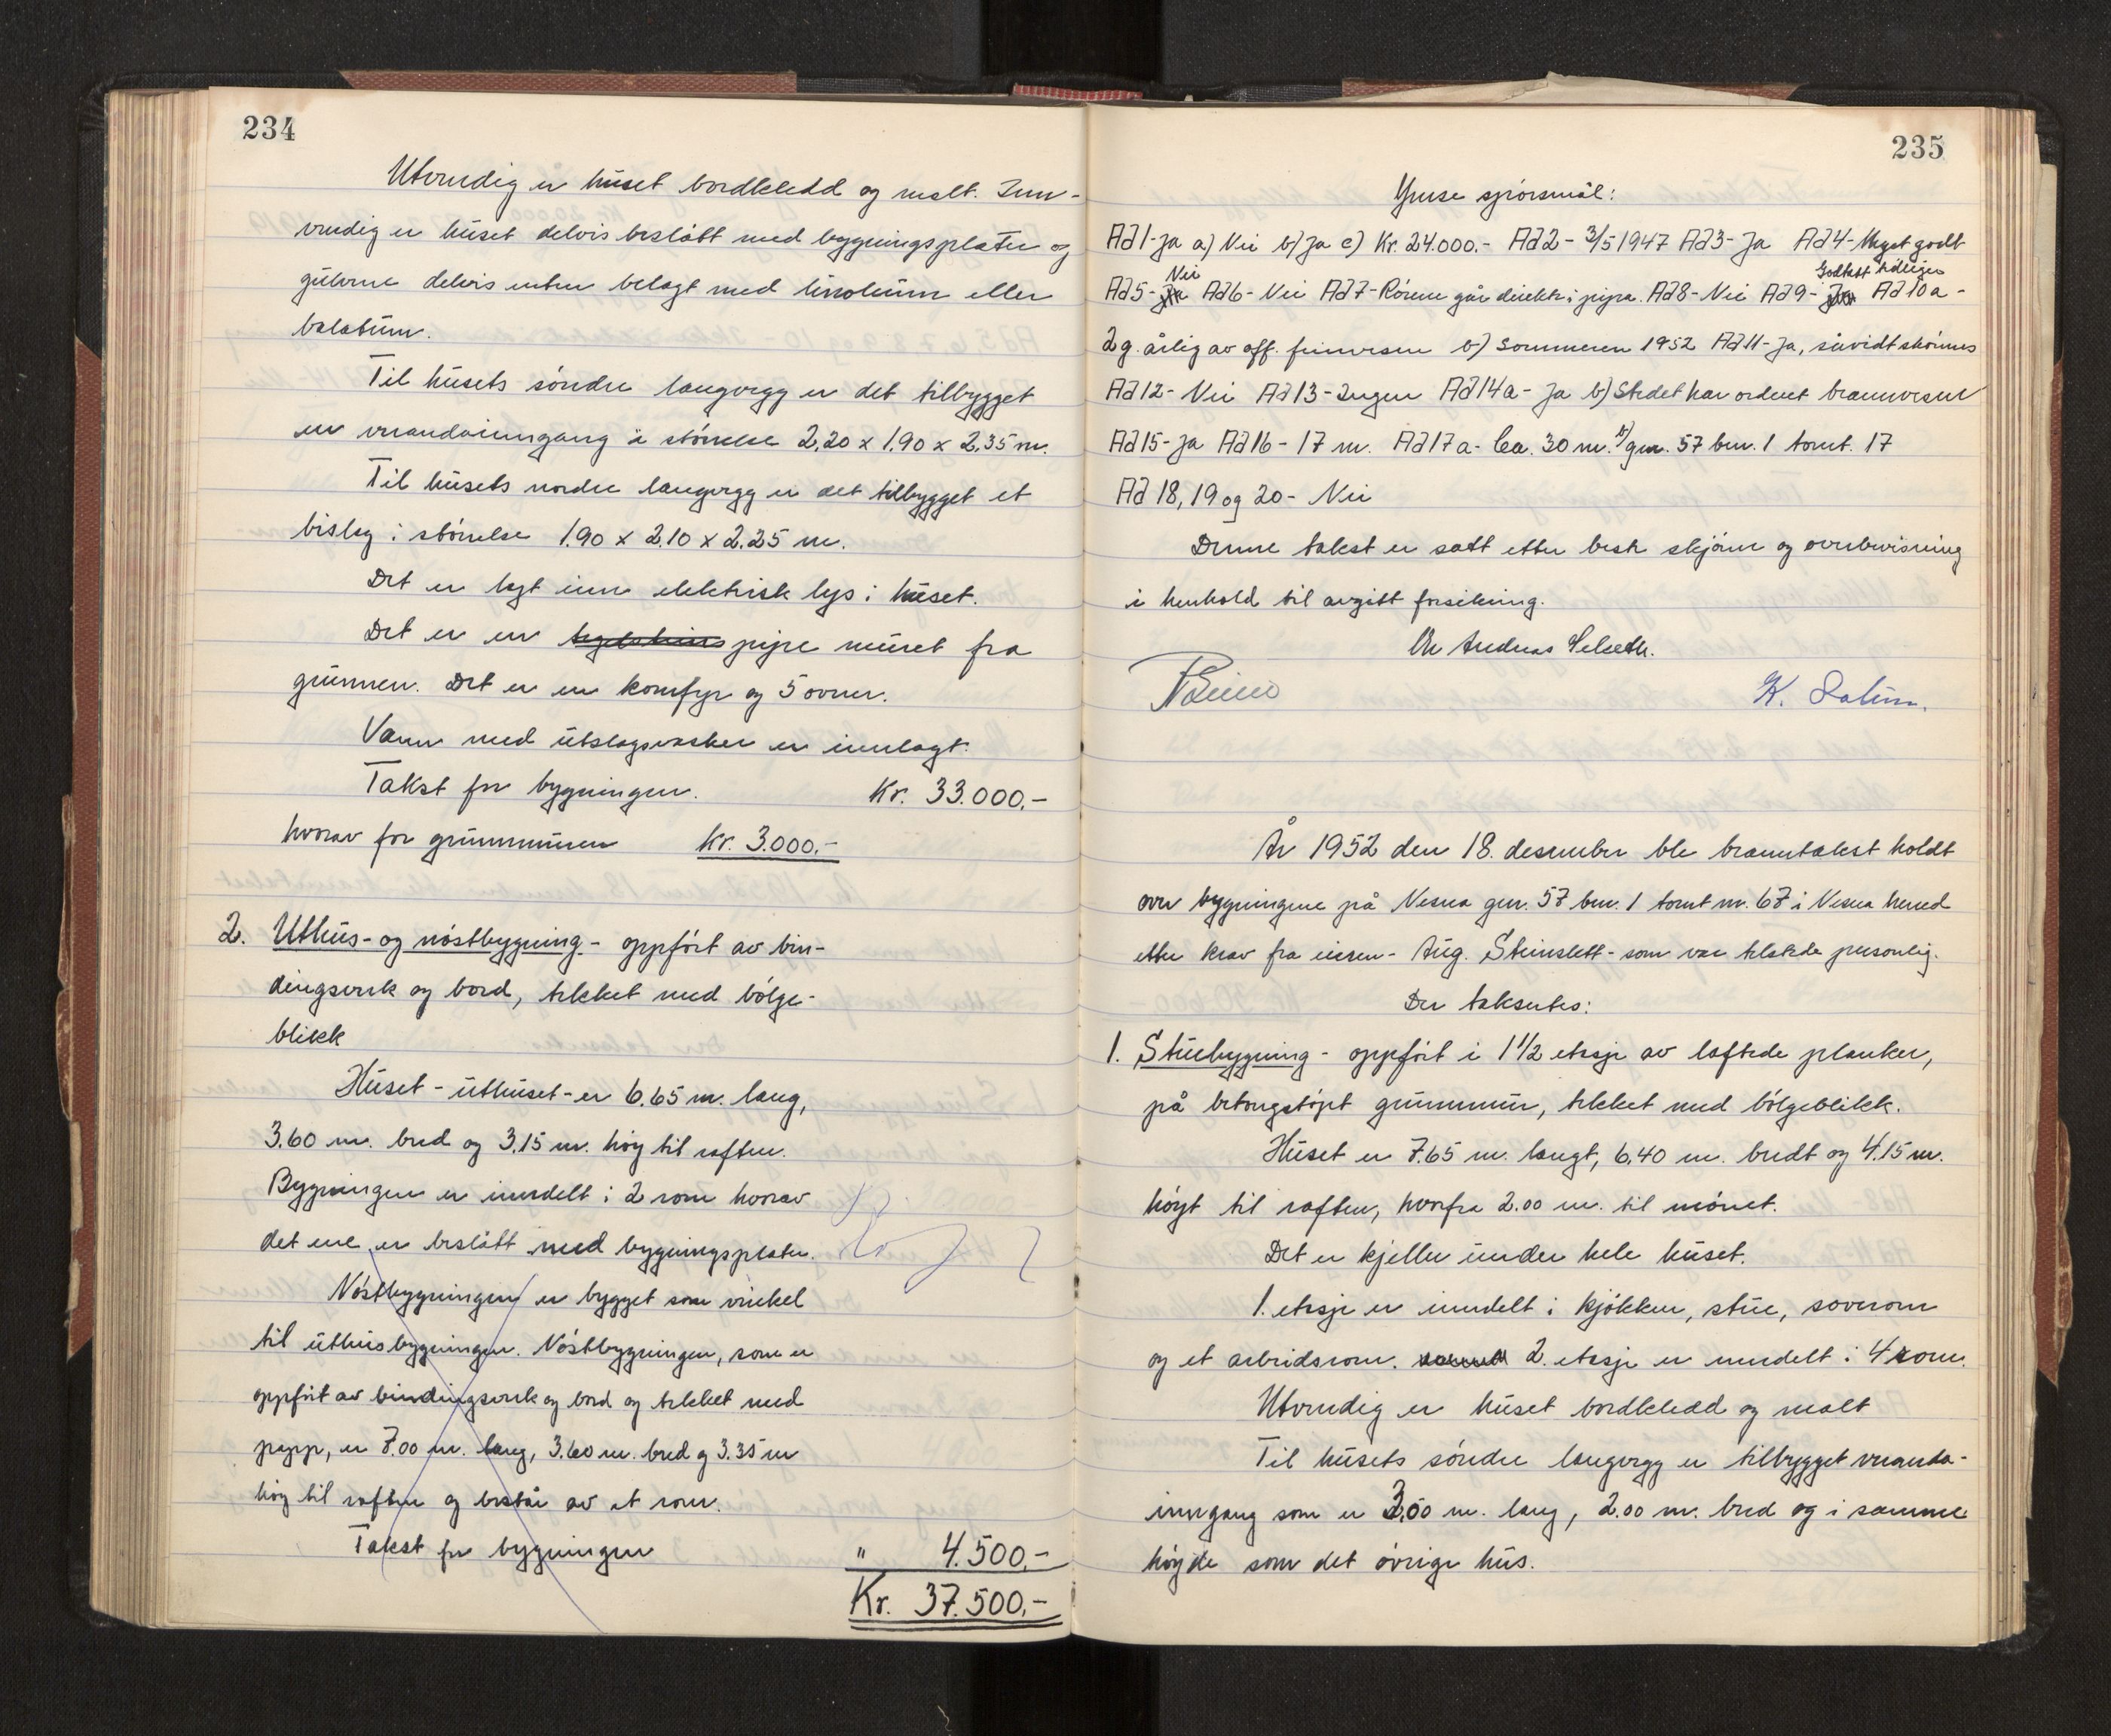 234
Utvendig er huset bordkledd og malt. Inn-
vendig er huset delvis beslått med bygningsplater og
gulvene delvis enten belagt med linoleum eller
balatum.
Til husets søndre langvegg er det tilbygget
en verandainngang i størrelse 2,20 x 1,90 x 2,35 m.
Til husets nordre langvegg er det tilbygget et
bislag i størrelse 1.90 x 2.10 x 2.25 m.
Det er lagt inn elektrisk lys i huset.
Det er en pipe muret fra
grunnen. Det er en komfyr og 5 ovner.
Vann med utslagsvasker er innlagt.
Takst for bygningen. Kr. 33.000,-
hvorav for grunnmuren kr. 3.000.-
2. Uthus- og nøstbygning - oppført av bin-
dingsverk og bord, tekket med bølge-
blikk
Huset - uthuset - er 6.65 m. lang,
3.60 m. bred og 3.15 m. høg til raften.
Bygningen er inndelt i 2 rom hvorav
det ene er beslått med bygningsplater.
Nøstbygningen er bygget som vinkel
til uthusbygningen. Nøstbygningen, som er
oppført av bindingsverk og bord og tekket med
papp, er 7.00 m. lang, 3.60 m. bred og 3.35 m
høg til raften og består av et rom.
Takst for bygningen " 4.500,-
Kr. 37.500,-
235
Ymse spørsmål:
Ad 1 - Ja a) Nei b) Ja c) Kr. 24.000.- Ad 2 - 3/5 1947 Ad 3 - Ja Ad 4 - Meget godt
Ad 5 - Nei Ad 6 - Nei Ad 7 - Rørene går direkte i pipa. Ad 8 - Nei Ad 9 - Godkjent tidligere Ad 10 a -
2 g. årlig av off. feiervesen b) Sommeren 1952 Ad 11 - Ja, såvidt skjønnes
Ad 12 - Nei Ad 13 - Ingen Ad 14 a - Ja b) Stedet har ordnet brannvesen
Ad 15 - Ja Ad 16 - 17 m. Ad 17 a - Ca. 30 m. b) gnr. 57 bnr. 1 tomt. 17
Ad 18, 19 og 20 - Nei
Denne takst er satt etter beste skjønn og overbevisning
i henhold til avgitt forsikring.
Chr Andreas Selseth.
K. Salum.
År 1952 den 18. desember ble branntakst holdt
over bygningene på Nesna gnr. 57 bnr. 1 tomt nr. 67 i Nesna herred
etter krav fra eieren - Aug. Steinslett - som var tilstede personlig.
Der takseres:
1. Stuebygning - oppført i 1 1/2 etasje av laftede planker,
på betongstøpt grunnmur, tekket med bølgeblikk.
Huset er 7.65 m. langt, 6.40 m. bredt og 4.15 m.
høyt til raften, hvorfra 2.00 m. til mønet.
Det er kjeller under hele huset.
1. etasje er inndelt i kjøkken, stue, soverom
og et arbeidsrom. 2. etasje er inndelt i 4 rom.
Utvendig er huset bordkledd og malt
Til husets søndre langvegg er tilbygget veranda-
inngang som er 3.00 m. lang, 2.00 m. bred og i samme
høyde som det øvrige hus.